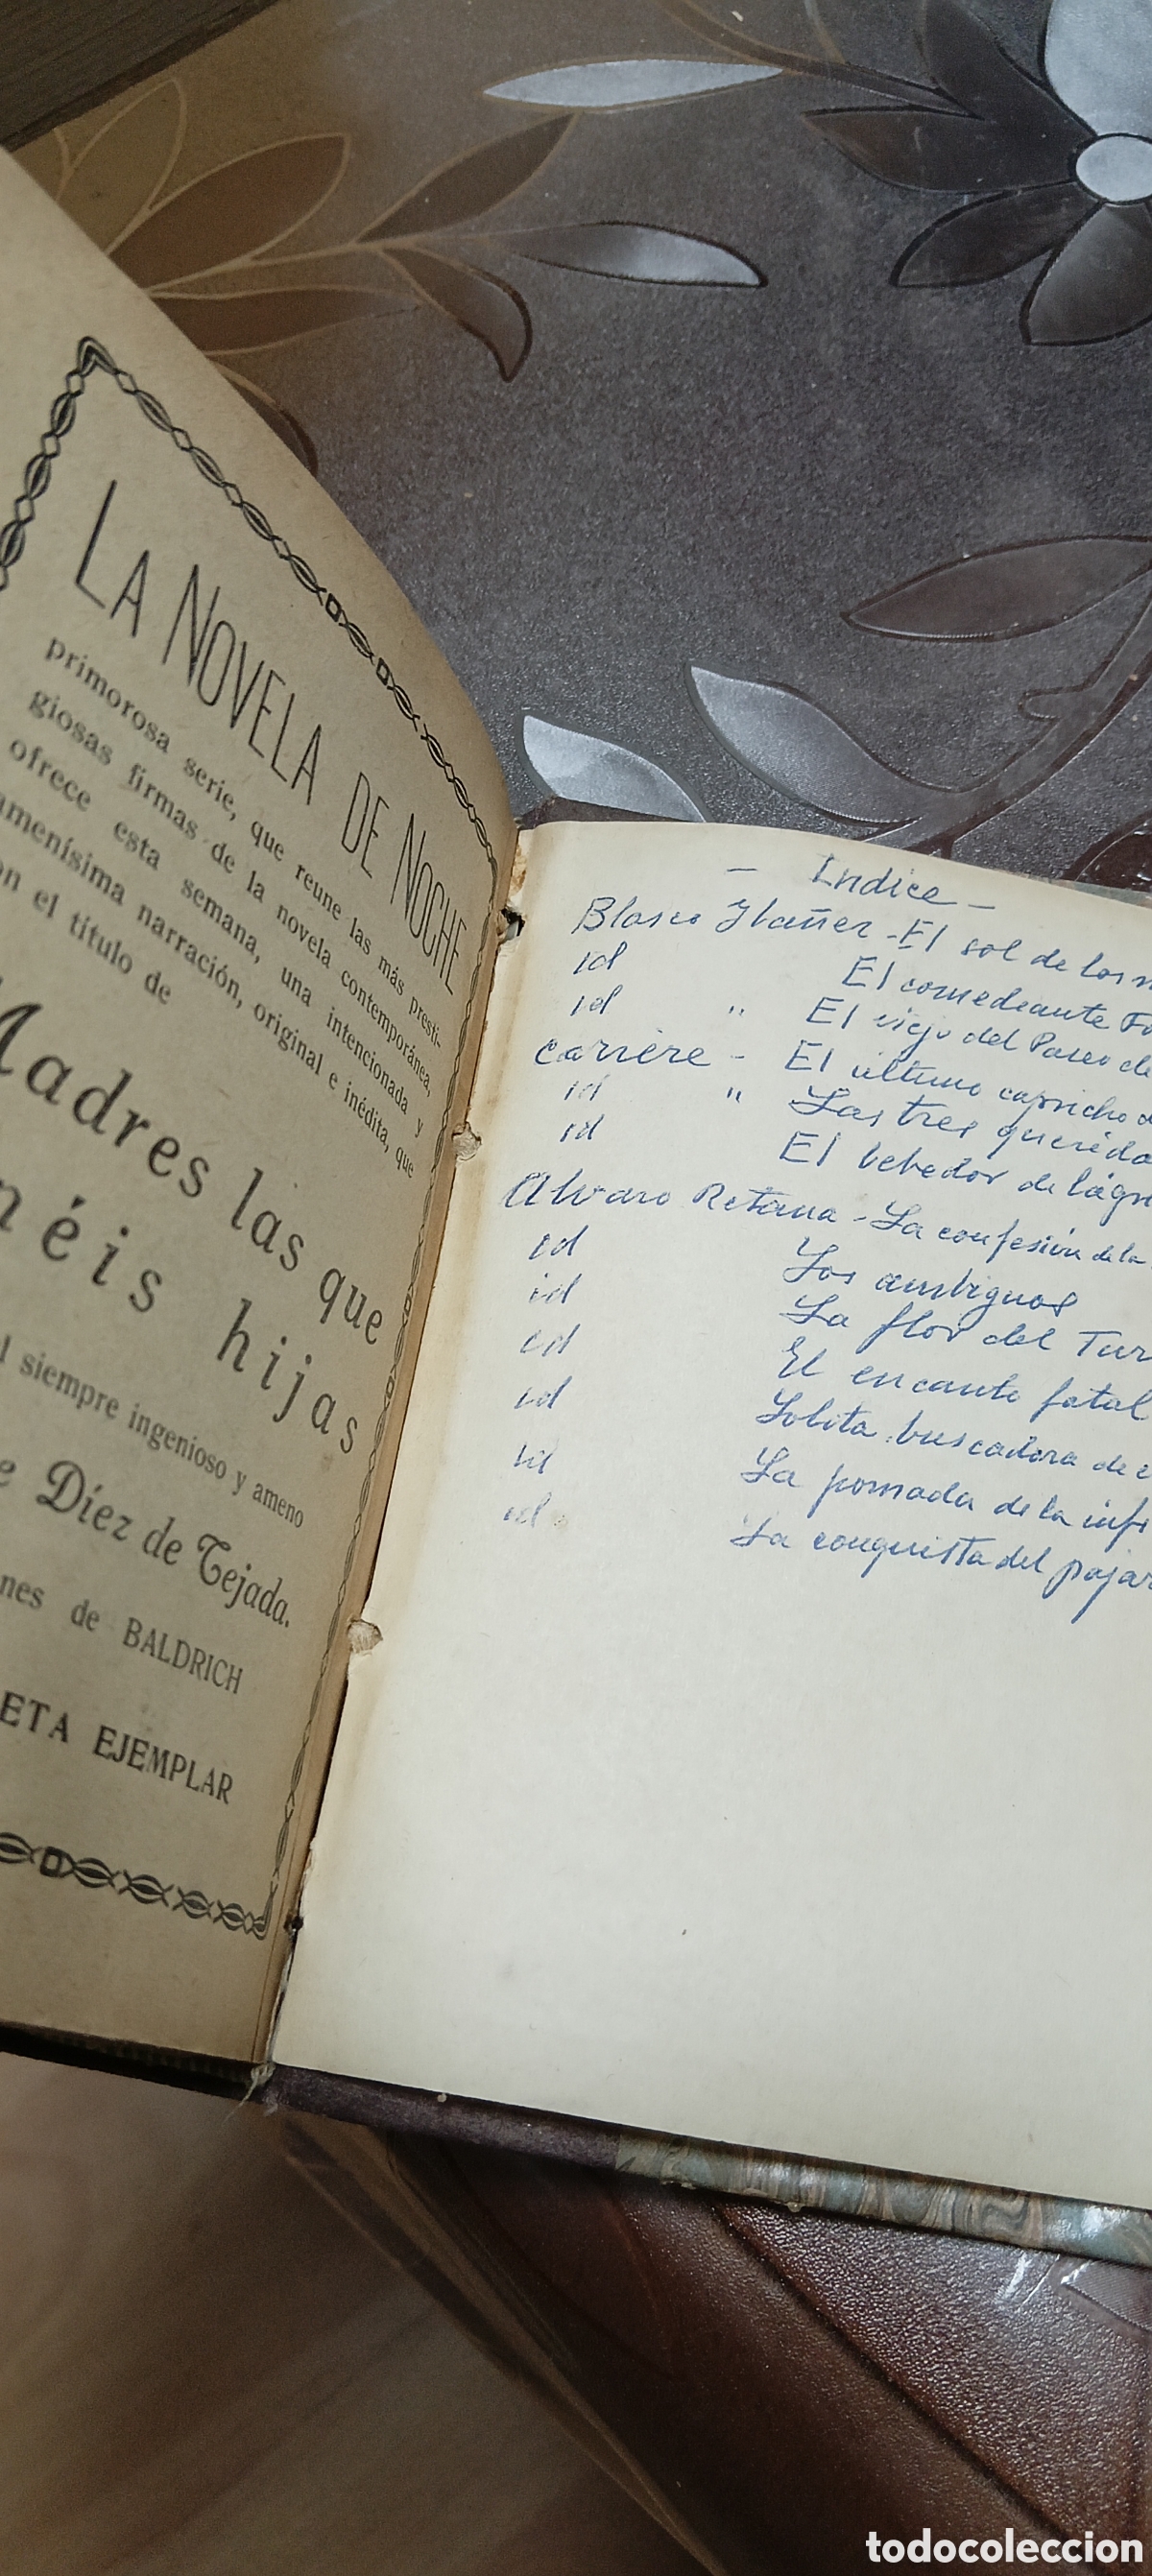 LA NOVELA DE NOCHE
primorosa serie, que reune las más presti-
giosas firmas de la novela contemporánea,
ofrece esta semana, una intencionada y
amenísima narración, original e inédita, que
el título de
Madres las que
hijas
siempre ingenioso y ameno
Díez de Tejada.
de BALDRICH
EJEMPLAR
- Indice -
Blasco Ybañez - El sol de los
id El comediante
id " El viejo del Paseo de
Carrère - El último capricho
id " Las tres
id El bebedor de
Alvaro Retana - La confesión de la
id Los ambiguos
id La flor del
id El encanto fatal
id Lolita buscadora de
id La pomada de la
id La conquista del
todocoleccion